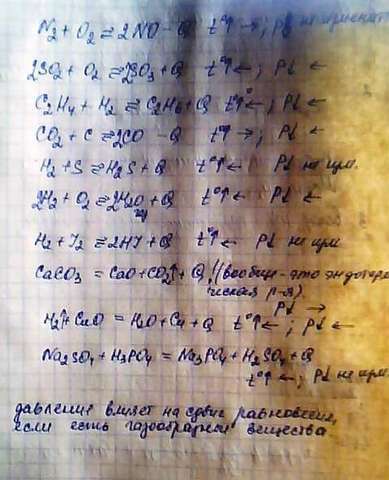 N₂ + O₂ ⇄ 2NO - Q t°↑ →; P↓ не
2SO₂ + O₂ ⇄ 2SO₃ + Q t°↑ ←; P↓ ←
C₂H₄ + H₂ ⇄ C₂H₆ + Q t°↑ ←; P↓ ←
CO₂ + C ⇄ 2CO - Q t°↑ →; P↓ ←
H₂ + S ⇄ H₂S + Q t°↑ ← P↓ не
2H₂ + O₂ ⇄ 2H₂O + Q t°↑ ← P↓ ←
H₂ + J₂ ⇄ 2HJ + Q t°↑ ← P↓ не
CaCO₃ = CaO + CO₂↑ + Q !(вообще - это эндотерм
ическая р-я).
P↓ →
H₂↑ + CuO = H₂O + Cu + Q t°↑ ←; P↓ ←
Na₂SO₄ + H₃PO₄ = Na₃PO₄ + H₂SO₄ + Q
t°↑ ←; P↓ не
давления влияет на сдвиг равновесия,
если есть газообразные вещества